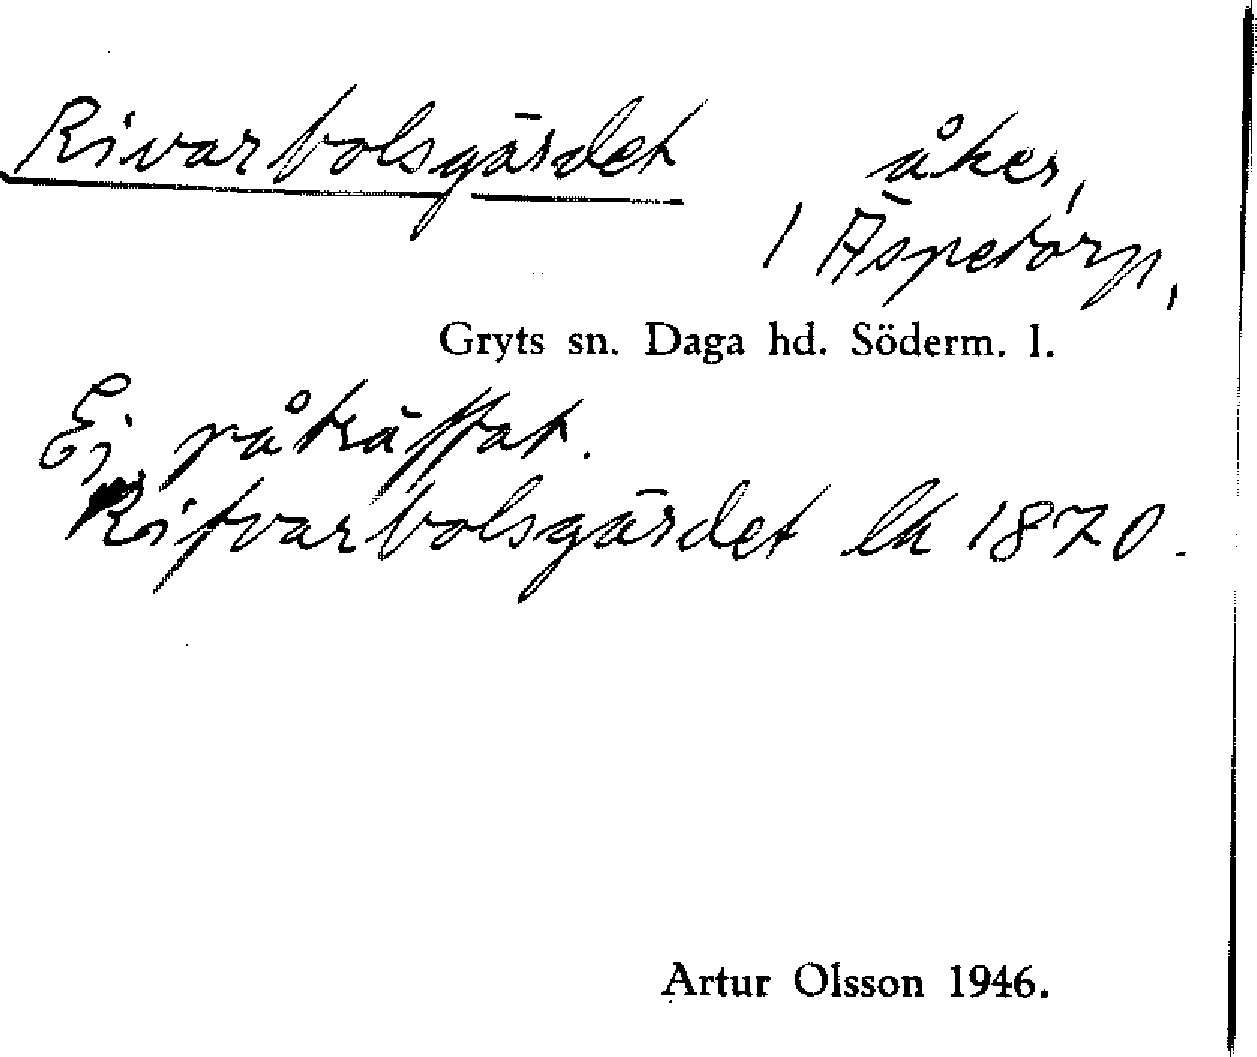 Rivarbolsgärdet åker,
1 Äspetorp,
Gryts sn. Daga hd. Söderm. l.
Ej påträffat.
Rifvarbolsgärdet lk 1870.
Artur Olsson 1946.